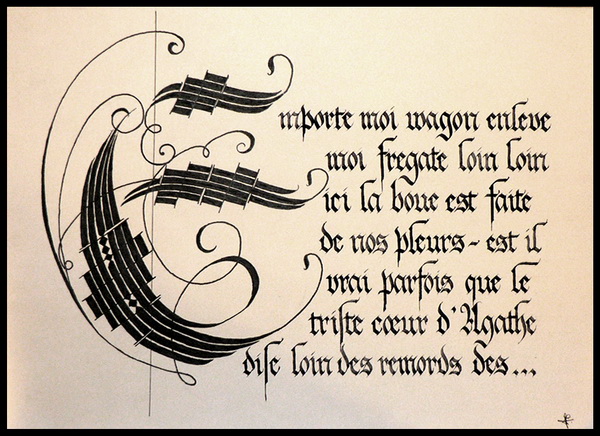 Emporte moi wagon enleve
moi fregate loin loin
ici la boue est faite
de nos pleurs - est il
vrai parfois que le
triste cœur d'Agathe
dise loin des remords des...